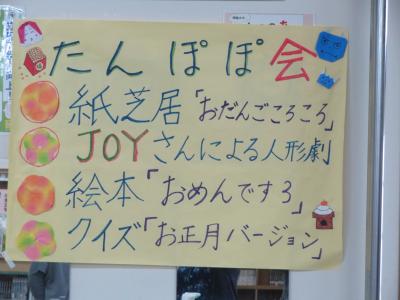 たんぽぽ会
紙芝居「おだんごころころ」
JOYさんによる人形劇
絵本「おめんです3」
クイズ「お正月バージョン」